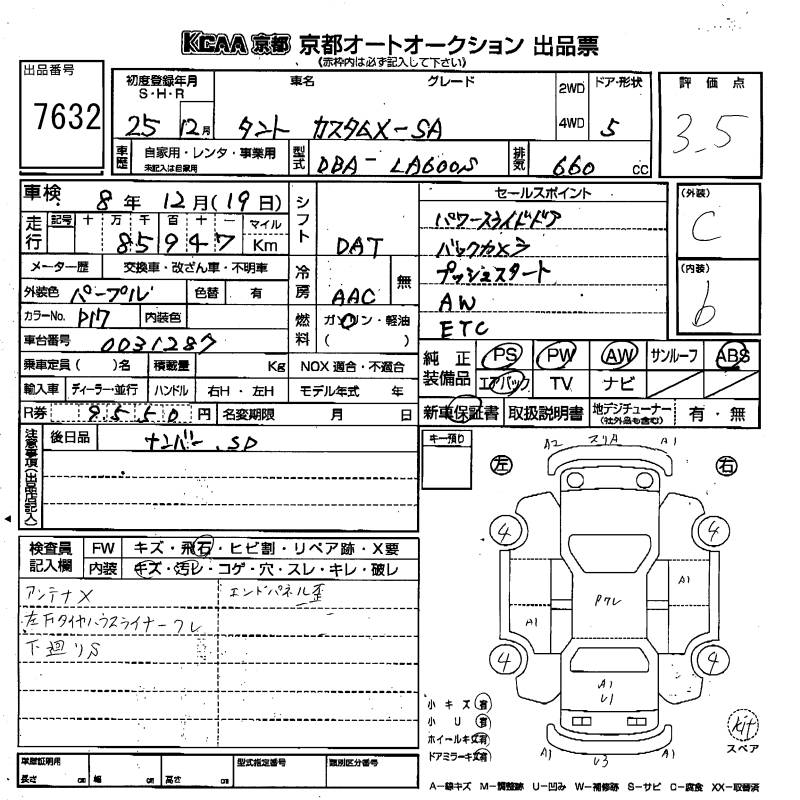 KCAA 京都 京都オートオークション 出品票
《赤枠内は必ず記入して下さい》
出品番号
7632
初度登録年月
S・H・R
25 12月
車名
タント
グレード
カスタムX-SA
2WD
4WD
ドア・形状
5
評価点
3.5
車歴
自家用・レンタ・事業用
未記入は自家用
型式
DBA- LA600S
排気
660 cc
車検
8年 12月(19日)
シフト
DAT
セールスポイント
パワースライドドア
バックカメラ
プッシュスタート
AW
ETC
(外装)
C
(内装)
b
走行
記号 十 万 千 百 十 一 マイル
85947 Km
メーター歴 交換車・改ざん車・不明車
冷房
AAC
無
外装色 パープル 色替 有
カラーNo. P17 内装色
燃料
ガソリン・軽油
( )
車台番号 0031287
乗車定員( )名 積載量 Kg NOX適合・不適合
輸入車 ディーラー・並行 ハンドル 右H・左H モデル年式 年
R券 9550円 名変期限 月 日
純正装備品
PS PW AW サンルーフ ABS
エアバック TV ナビ
新車保証書 取扱説明書 地デジチューナー(社外品も含む) 有・無
注意事項(出品店記入)
後日品 ナンバー、SD
キー預り
左 右
A2 スリ A A1
4 4
A1
A1
Pクレ
4 4
A1
U1
A1 U3 A1
検査員記入欄
FW キズ・飛石・ヒビ割・リペア跡・X要
内装 キズ・汚レ・コゲ・穴・スレ・キレ・破レ
アンテナX
エンドパネル歪
左Fタイヤハウスライナークレ
下廻りS
小キズ 有
小U 有
ホイールキズ 有
ドアミラーキズ 有
kit
スペア
車庫証明用
長さ cm 幅 cm 高さ cm
型式指定番号
類別区分番号
A-線キズ M-調整跡 U-凹み W-補修跡 S-サビ C-腐食 XX-取替済